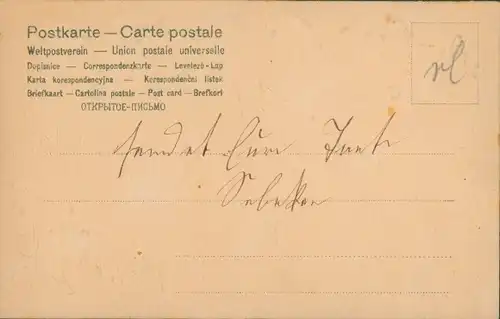 Postkarte — Carte postale
Weltpostverein — Union postale universelle
Dopisnice — Correspondenzkarte — Levelező-Lap
Karta korespondencyjna — Korespondenční lístek
Briefkaart — Cartolina postale — Post card — Brefkort
ОТКРЫТОЕ-ПИСЬМО
sendet Eure Tante